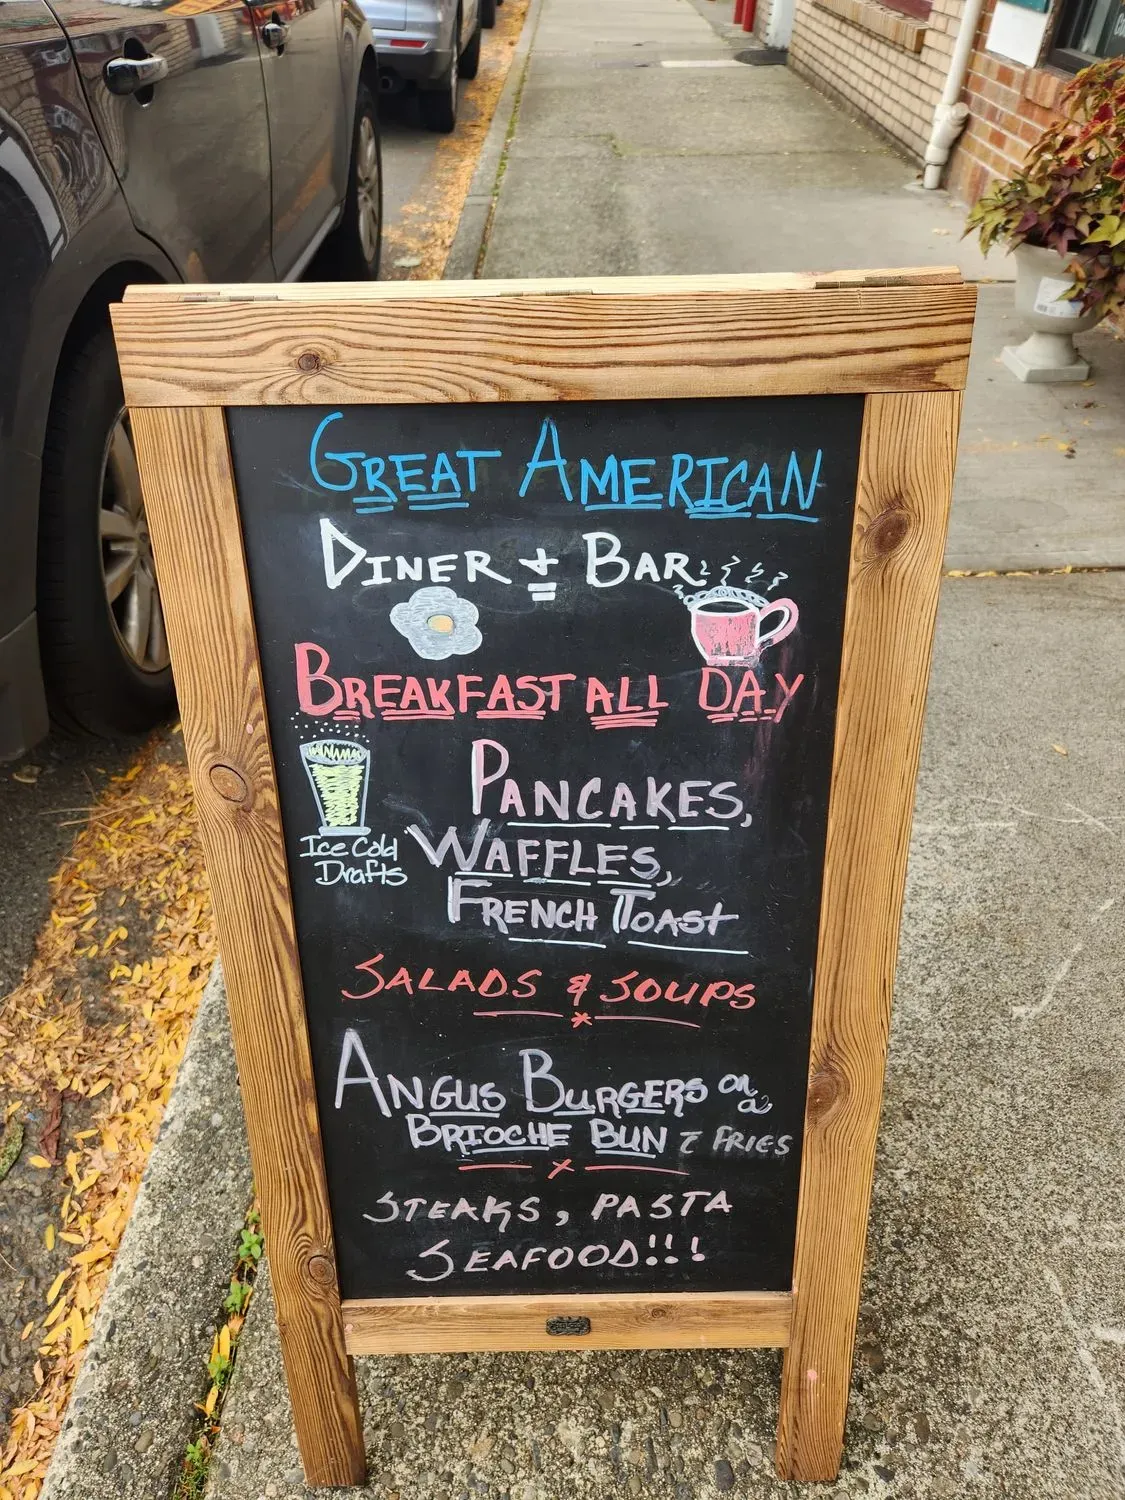 GREAT AMERICAN
DINER + BAR
BREAKFAST ALL DAY
PANCAKES,
WAFFLES,
FRENCH TOAST
Ice Cold
Drafts
SALADS & SOUPS
ANGUS BURGERS on a
BRIOCHE BUN c̄ FRIES
STEAKS, PASTA
SEAFOOD!!!